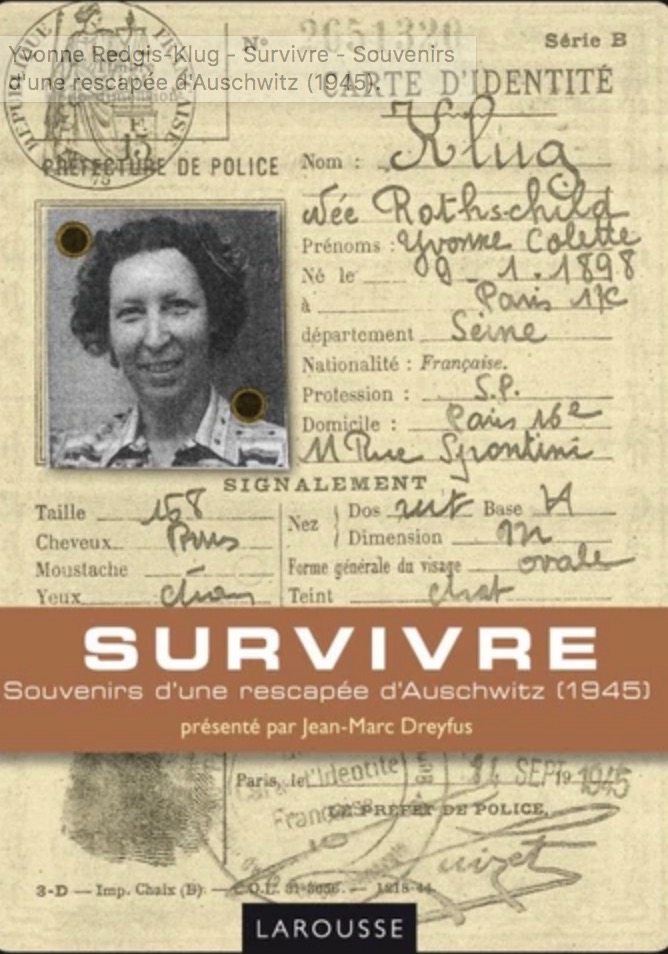 Yvonne Redgis-Klug - Survivre - Souvenirs
d'une rescapée d'Auschwitz (1945).
RÉPUBLIQUE FRANÇAISE
15
75
N° 2651320
Série B
CARTE D'IDENTITÉ
PRÉFECTURE DE POLICE
Nom : Klug
Née Rothschild
Prénoms : Yvonne Colette
Né le 09 - 1 . 1898
à Paris
département Seine
Nationalité : Française.
Profession : S.P.
Domicile : Paris 16e
Rue Spontini
SIGNALEMENT
Taille 168
Cheveux
Moustache
Yeux
Nez
Dos Base
Dimension m
Forme générale du visage ovale
Teint
SURVIVRE
Souvenirs d'une rescapée d'Auschwitz (1945)
présenté par Jean-Marc Dreyfus
Paris, le SEPT 19 1945
Carte d'Identité
Française
LE PRÉFET DE POLICE,
3-D — Imp. Chaix (B). — C.O.L. —
LAROUSSE